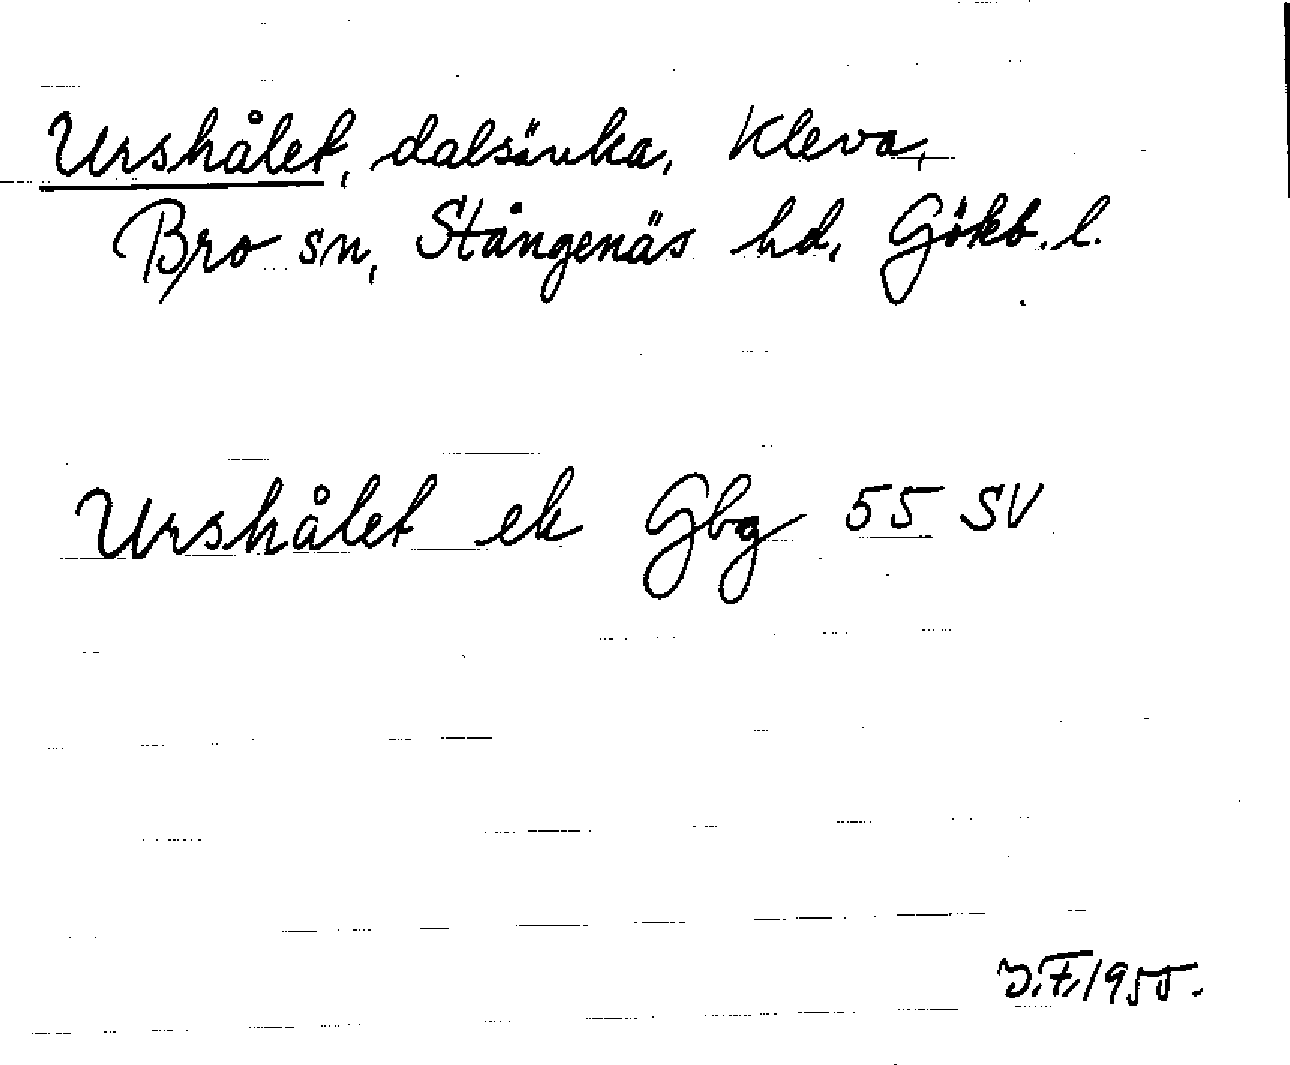 Urshålet, dalsänka, Kleva,
Bro sn, Stångenäs hd, Gökb. l.
Urshålet ek Gbg 55 SV
J.F. 1955.